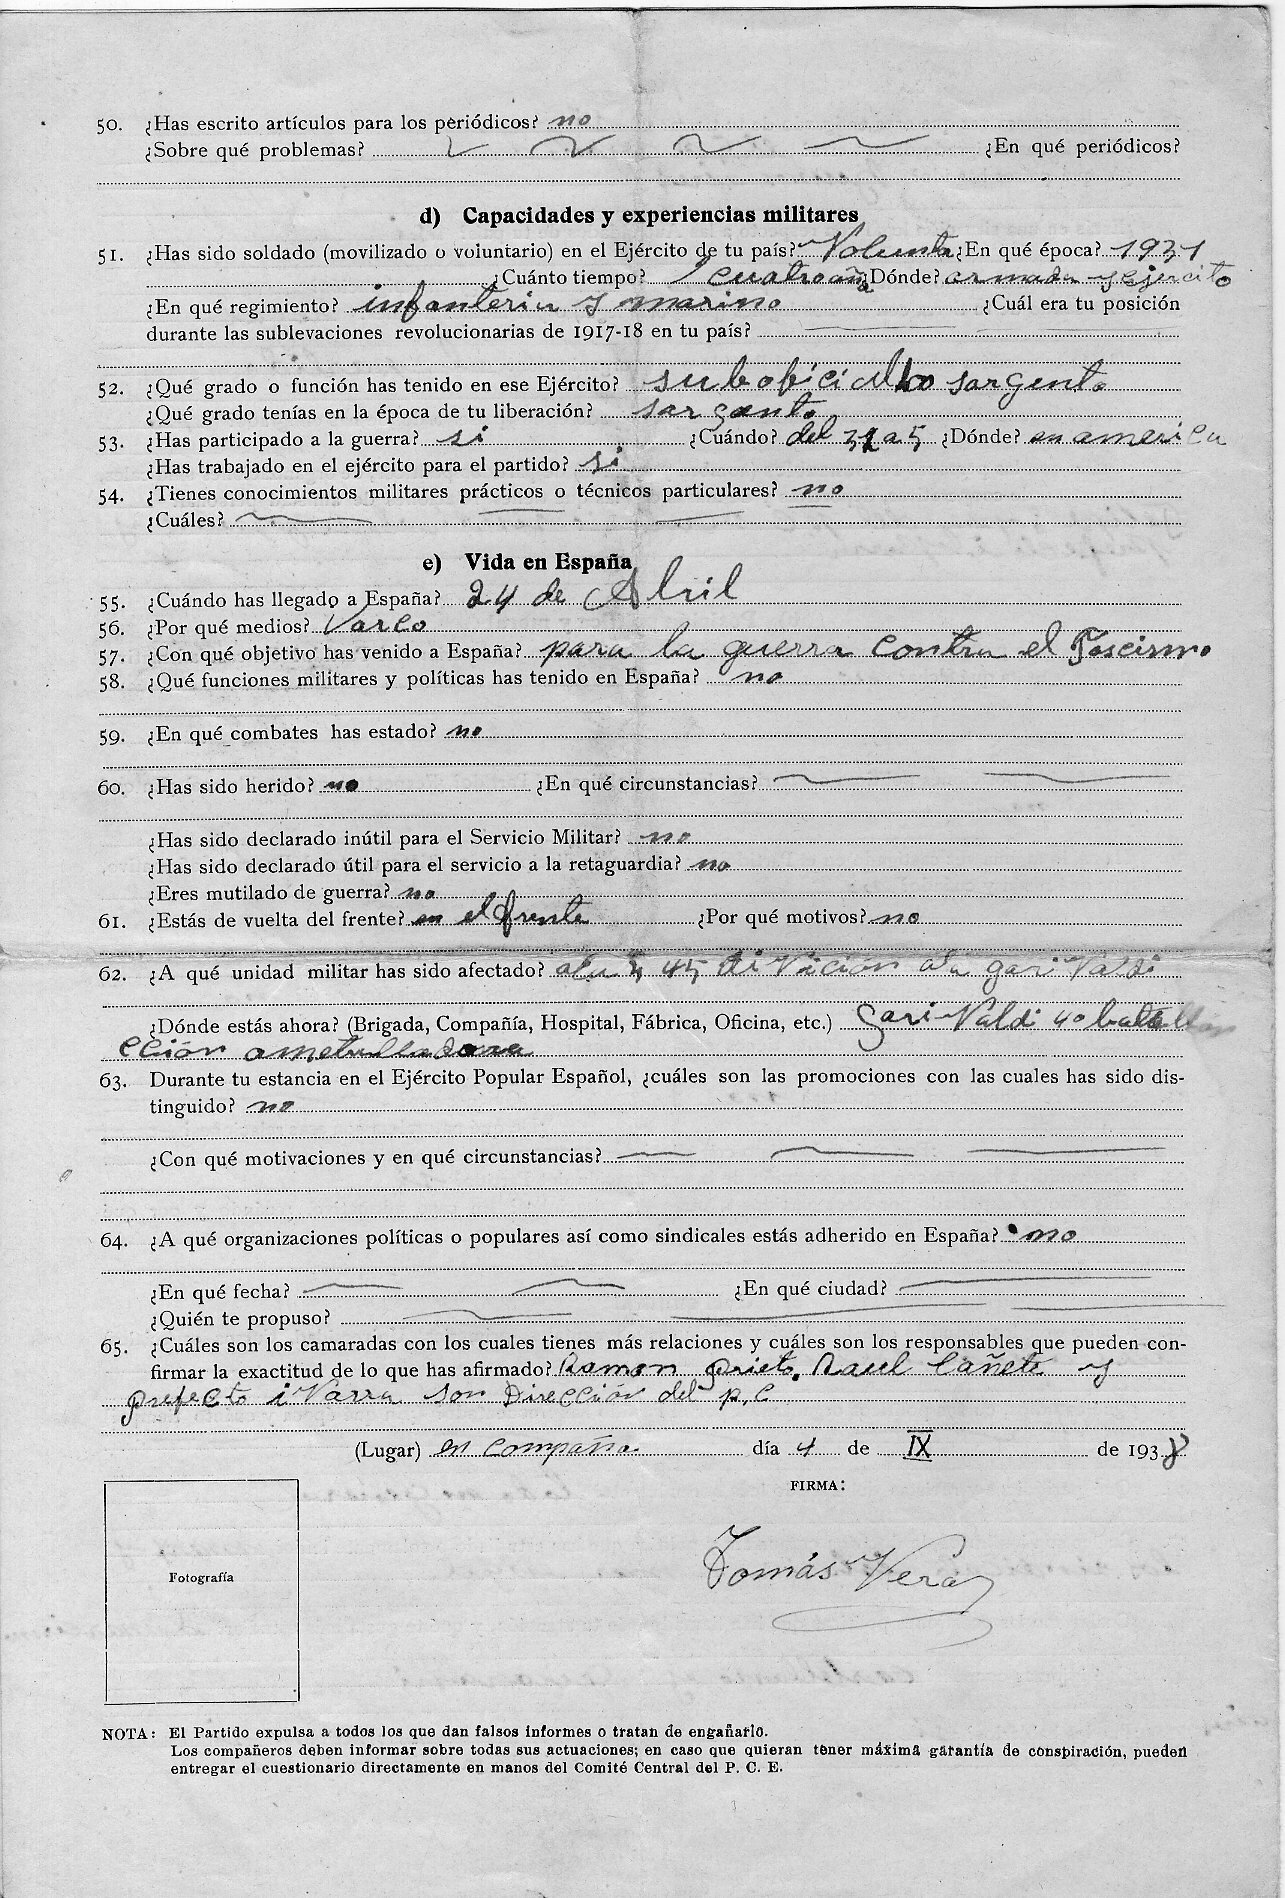 50. ¿Has escrito artículos para los periódicos? no
¿Sobre qué problemas? ¿En qué periódicos?
d) Capacidades y experiencias militares
51. ¿Has sido soldado (movilizado o voluntario) en el Ejército de tu país? Volunta ¿En qué época? 1931
¿Cuánto tiempo? cuatro año ¿Dónde? armada y ejercito
¿En qué regimiento? infanteria y marino ¿Cuál era tu posición
durante las sublevaciones revolucionarias de 1917-18 en tu país?
52. ¿Qué grado o función has tenido en ese Ejército? sargento
¿Qué grado tenías en la época de tu liberación? sargento
53. ¿Has participado a la guerra? si ¿Cuándo? del a 5 ¿Dónde? en america
¿Has trabajado en el ejército para el partido? si
54. ¿Tienes conocimientos militares prácticos o técnicos particulares? no
¿Cuáles?
e) Vida en España
55. ¿Cuándo has llegado a España? 24 de Abril
56. ¿Por qué medios? Varco
57. ¿Con qué objetivo has venido a España? para la guerra contra el Fascismo
58. ¿Qué funciones militares y políticas has tenido en España? no
59. ¿En qué combates has estado? no
60. ¿Has sido herido? no ¿En qué circunstancias?
¿Has sido declarado inútil para el Servicio Militar? no
¿Has sido declarado útil para el servicio a la retaguardia? no
¿Eres mutilado de guerra? no
61. ¿Estás de vuelta del frente? en el frente ¿Por qué motivos? no
62. ¿A qué unidad militar has sido afectado? 45 diVición ala gariValdi
¿Dónde estás ahora? (Brigada, Compañía, Hospital, Fábrica, Oficina, etc.) GariValdi 4º batallón
cción ametralladora
63. Durante tu estancia en el Ejército Popular Español, ¿cuáles son las promociones con las cuales has sido dis-
tinguido? no
¿Con qué motivaciones y en qué circunstancias?
64. ¿A qué organizaciones políticas o populares así como sindicales estás adherido en España? no
¿En qué fecha? ¿En qué ciudad?
¿Quién te propuso?
65. ¿Cuáles son los camaradas con los cuales tienes más relaciones y cuáles son los responsables que pueden con-
firmar la exactitud de lo que has afirmado? Ramon prieto. Raul Cañete y
prefecto iVarra son Dirección del p,c
(Lugar) en compañia día 4 de IX de 1938
FIRMA:
Tomás Vera
Fotografía
NOTA: El Partido expulsa a todos los que dan falsos informes o tratan de engañarlo.
Los compañeros deben informar sobre todas sus actuaciones; en caso que quieran tener máxima garantía de conspiración, pueden
entregar el cuestionario directamente en manos del Comité Central del P. C. E.